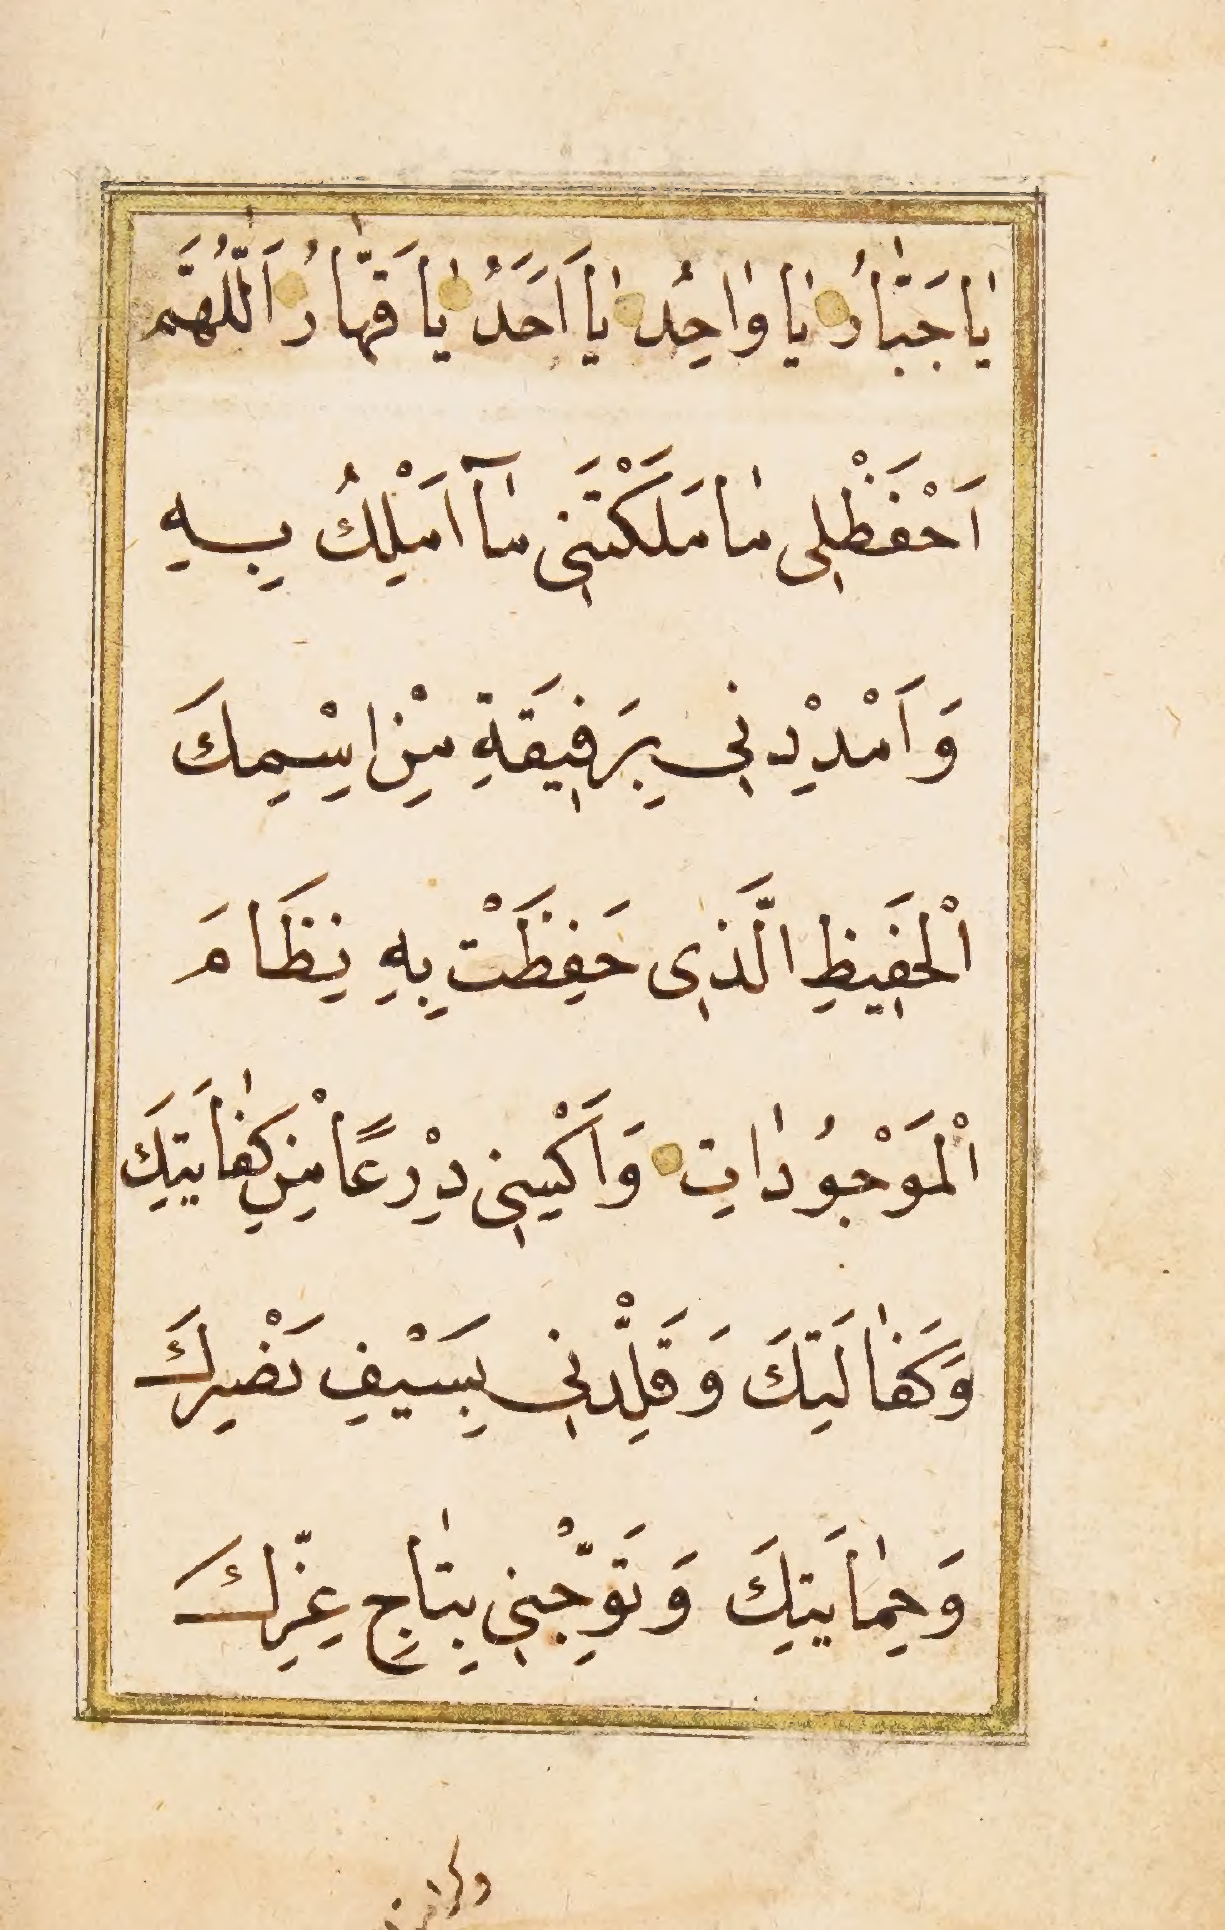 يَا جَبَّارُ يَا وَاحِدُ يَا اَحَدُ يَا قَهَّارُ اَللّٰهُمَّ
اَحْفَظْلِى مَا مَلَكْتَنِى مَآ اَمْلِكُ بِهِ
وَاَمْدِدْنِى بِرَفِيقَةِ مِنْ اِسْمِكَ
الْحَفِيظِ الَّذِى حَفِظَتْ بِهِ نِظَامَ
الْمَوْجُودَاتِ وَاَكْسِنِى دِرْعًا مِنْ كَفَايَتِكَ
وَكَفَالَتِكَ وَقَلِّدْنِى بِسَيْفِ نَصْرِكَ
وَحِمَايَتِكَ وَتَوِّجْنِى بِتَاجِ عِزِّكَ